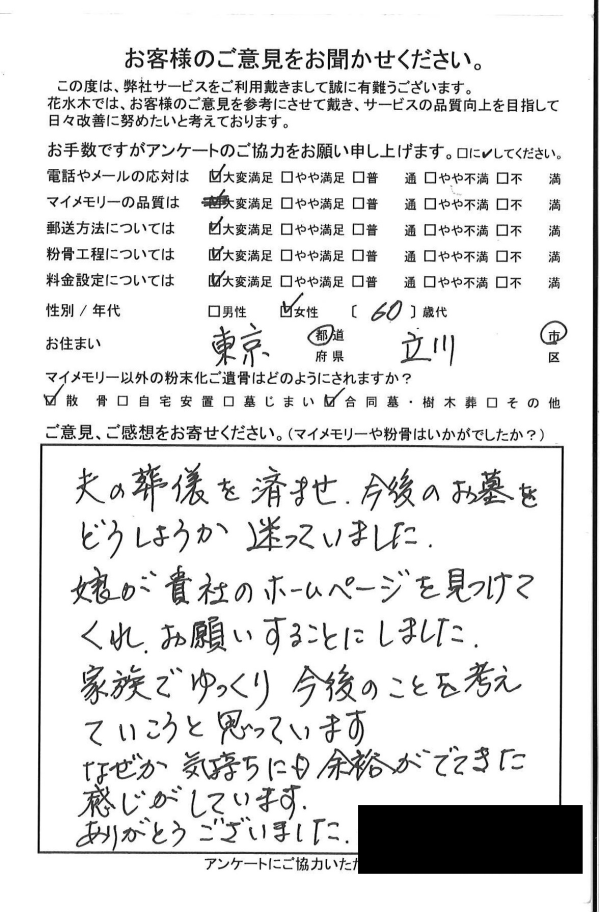 お客様のご意見をお聞かせください。
この度は、弊社サービスをご利用戴きまして誠に有難うございます。
花水木では、お客様のご意見を参考にさせて戴き、サービスの品質向上を目指して
日々改善に努めたいと考えております。
お手数ですがアンケートのご協力をお願い申し上げます。□に✔してください。
電話やメールの応対は ☑大変満足 □やや満足 □普 通 □やや不満 □不 満
マイメモリーの品質は ☑大変満足 □やや満足 □普 通 □やや不満 □不 満
郵送方法については ☑大変満足 □やや満足 □普 通 □やや不満 □不 満
粉骨工程については ☑大変満足 □やや満足 □普 通 □やや不満 □不 満
料金設定については ☑大変満足 □やや満足 □普 通 □やや不満 □不 満
性別 / 年代 □男性 ☑女性 〔 60 〕歳代
お住まい 東京 都道府県 立川 市区
マイメモリー以外の粉末化ご遺骨はどのようにされますか?
☑散 骨 □自宅安置 □墓じまい ☑合同墓・樹木葬 □その他
ご意見、ご感想をお寄せください。(マイメモリーや粉骨はいかがでしたか?)
夫の葬儀を済ませ、今後のお墓を
どうしようか 迷っていました.
娘が貴社のホームページを見つけて
くれ、お願いすることにしました.
家族でゆっくり 今後のことを考え
ていこうと思っています
なぜか 気持ちにも余裕がでてきた
感じがしています.
ありがとうございました.
アンケートにご協力いただ